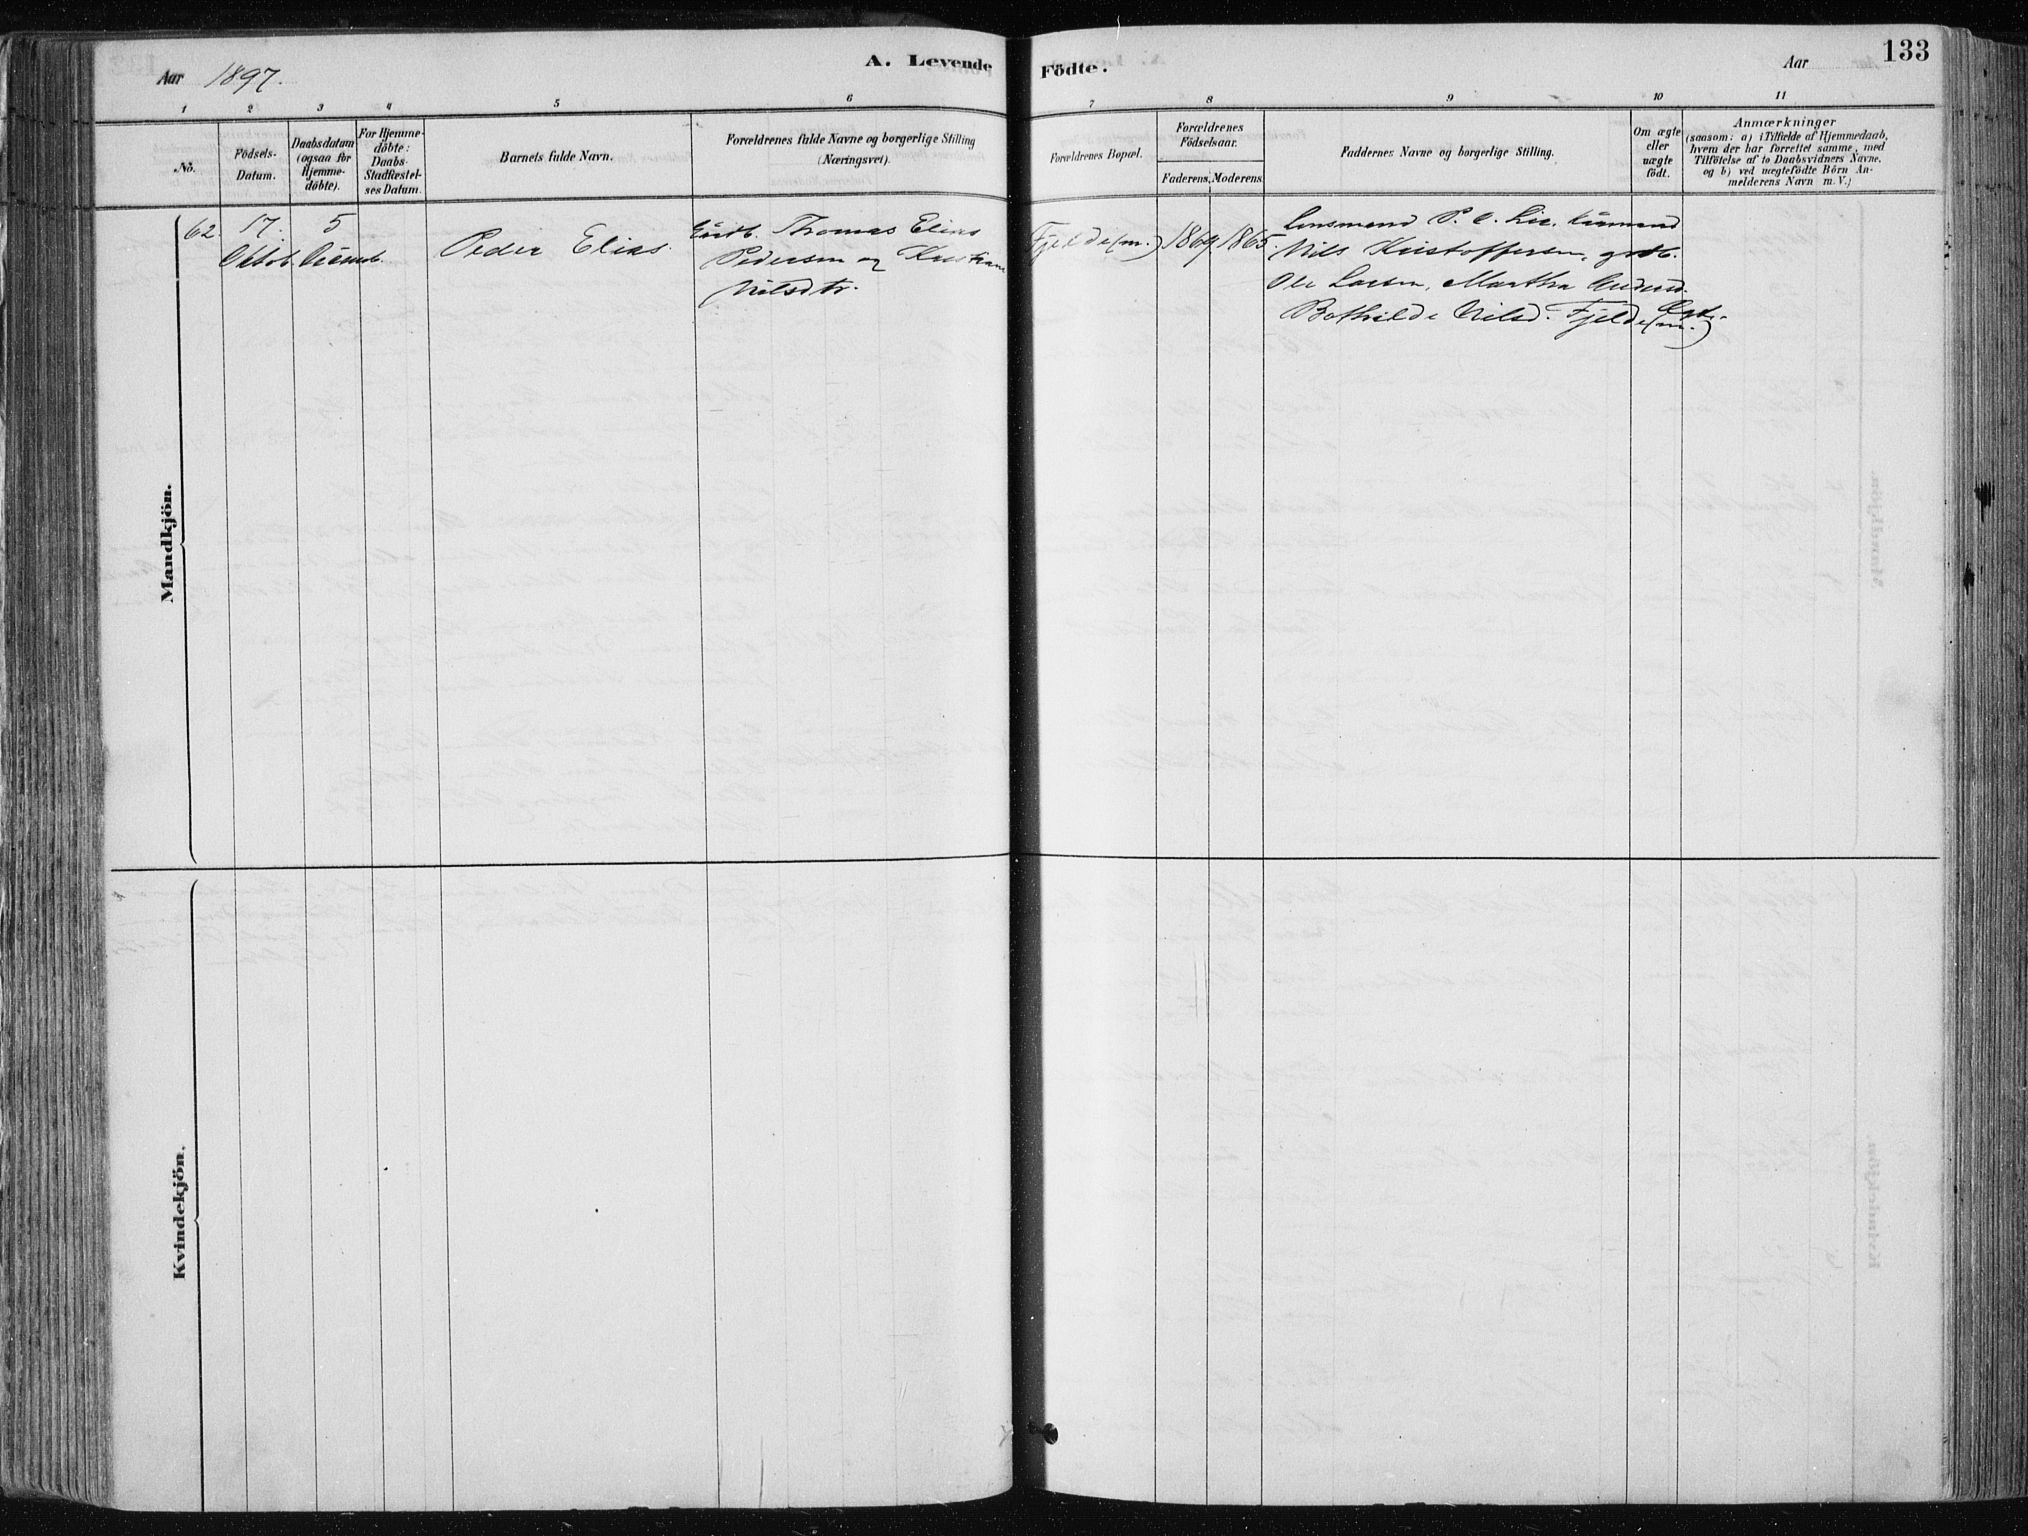 Aar 1897.
A. Levende Födte.
Aar
133
1 2 3 4 5 6 7 8 9 10 11
No.
Födsels-Datum.
Daabsdatum (ogsaa för Hjemme-döbte).
For Hjemme-döbte: Daabs-Stadfæstel-ses Datum.
Barnets fulde Navn.
Forældrenes fulde Navne og borgerlige Stilling
(Næringsvei).
Forældrenes Bopæl.
Forældrenes Födselsaar.
Faderens. Moderens.
Faddernes Navne og borgerlige Stilling.
Om ægte eller uægte födt.
Anmærkninger
(saasom: a) i Tilfælde af Hjemmedaab,
hvem der har forrettet samme, med
Tilföielse af to Daabsvidners Navne,
og b) ved uægtefödte Börn An-
melderens Navn m. V.)
Mandkjön.
62. 17. Oktob. 5 Peder Elias.
Thomas Elias
Pedersen og
Nilsdtr.
Fjelde (m.) 1869. 1865.
Lensmand P. O. Lie,
Nils Kristoffersen, grdb.
Ole Larsen, Martha
Bothilde Nilsd. Fjelde (m.)
Kvindekjön.